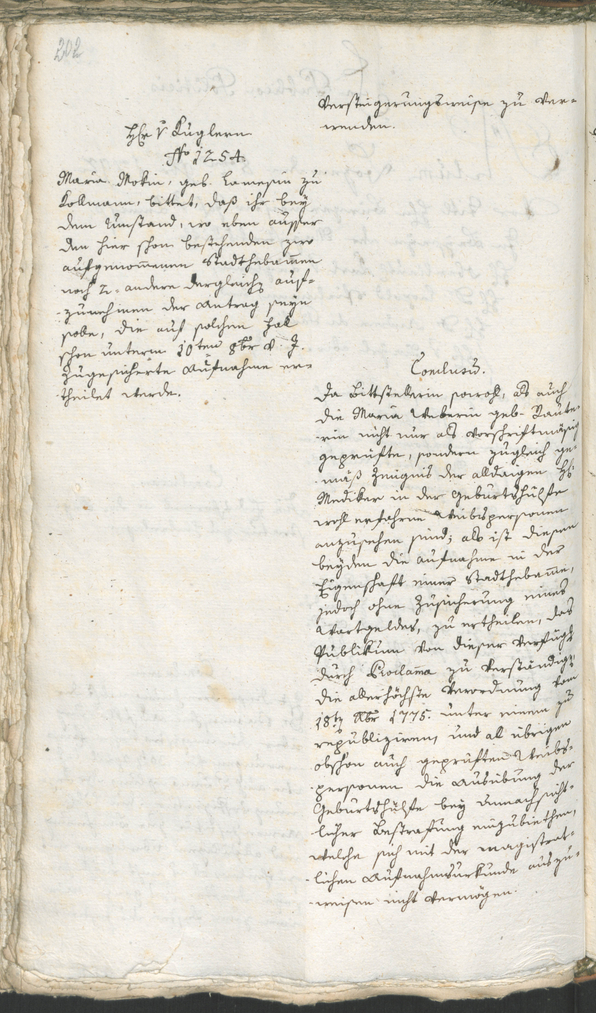 202
Hr v Kuglern
No 1254.
Maria Mokin, geb. Lamesin zu
Kollmann, bittet, daß ihr bey
dem Umstand, wo eben ausser
den hier schon bestehenden zwo
aufgenommenen Stadthebammen
noch 2. andere dergleich auf-
zunehmen der Antrag seyn
solle, die auf solchem Fall
schon unterm 10ten 8br v. J.
zugesicherte Aufnahme er-
theilet werde.
Versteigerungsweise zu ver-
wenden.
Conclusum.
Da Bittstellerin sowohl, als auch
die Maria Weberin geb.
nicht nur als vorschriftmäsig
geprüfte, sondern zugleich ge-
mäß Zeugnis der alldaigen H.
Mediker in der Geburtshülfe
wohl erfahrne Weibspersonen
anzusehen sind; als ist diesen
beyden die Aufnahme in der
Eigenschaft einer Stadthebamme,
jedoch ohne Zusicherung eines
Wartgeldes, zu ertheilen, das
Publikum von dieser Verfügg
durch Proclama zu verständigen
die allerhöchste Verordnung vom
18ten 1775. unter einem zu
republiziren, und all übrigen
obschon auch geprüften Weibs-
personen die Ausübung der
Geburtshülfe bey unnachsicht-
licher Bestrafung einzubiethen,
welche sich mit der magistrat-
lichen Aufnahmsurkunde auszu-
weisen nicht vermögen.